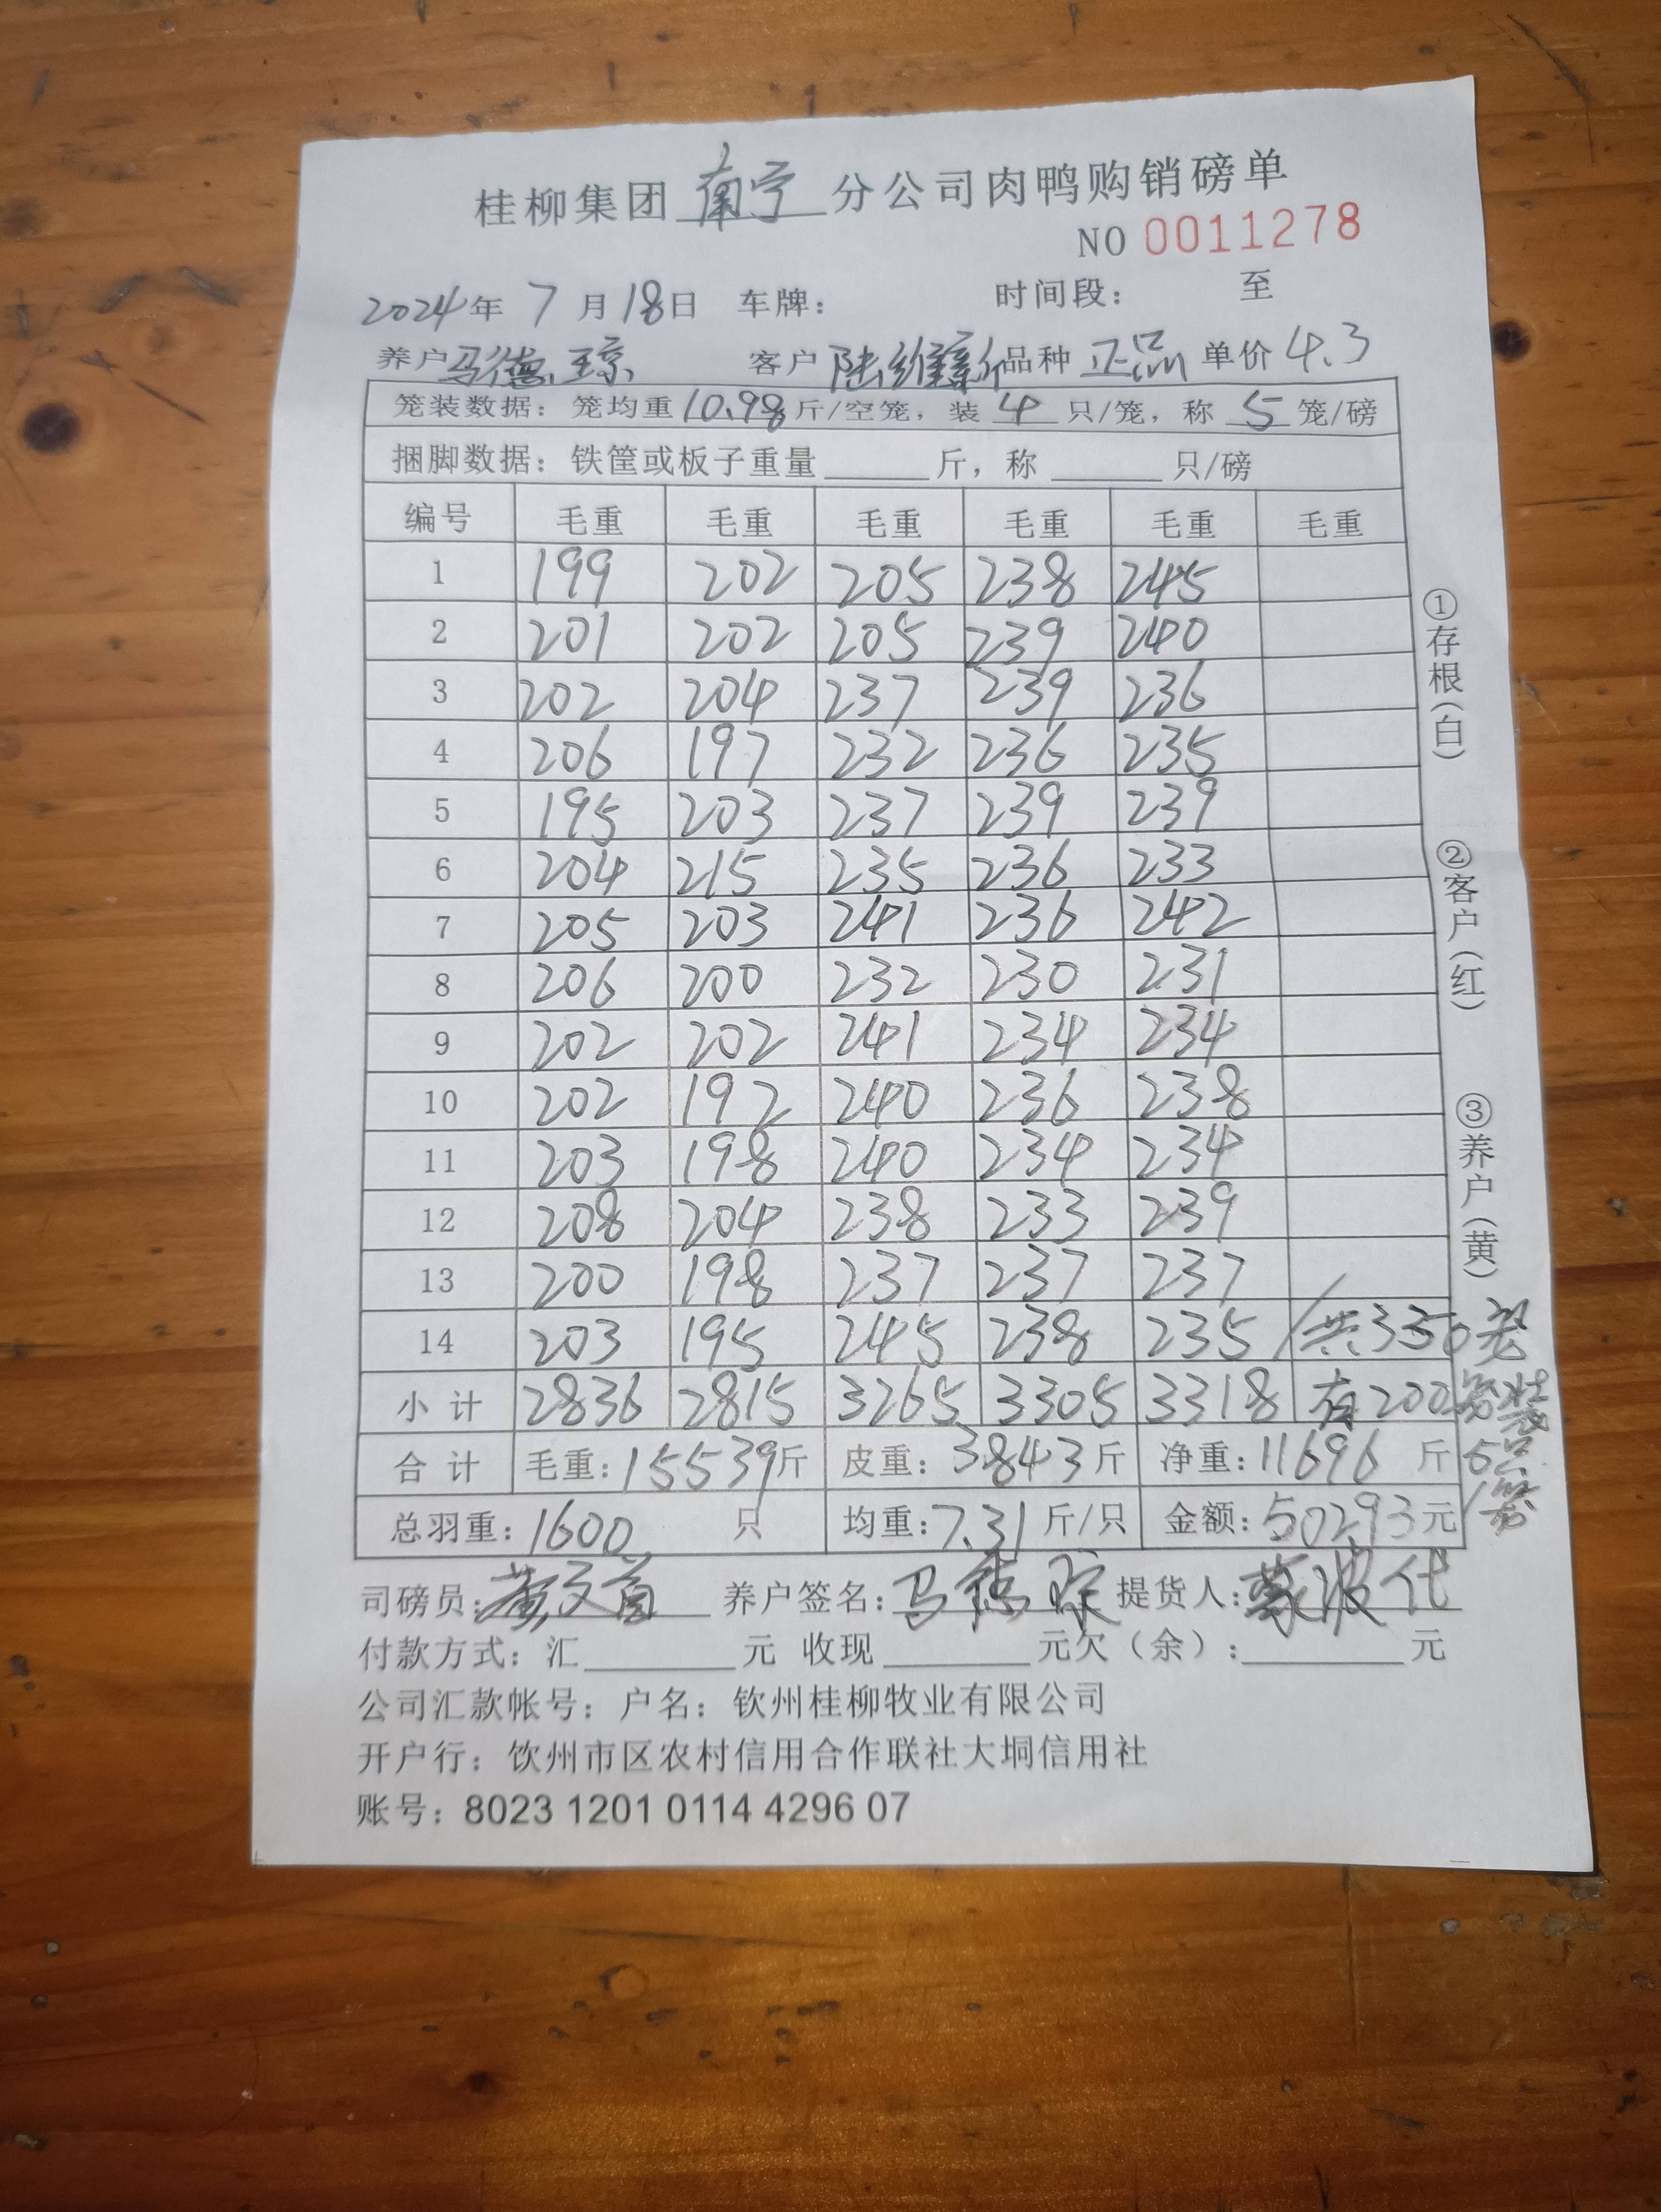 桂柳集团 南宁 分公司肉鸭购销磅单
NO 0011278
2024年 7月18日 车牌： 时间段： 至
养户 马德琼 客户 陆维新 品种 正品 单价 4.3
笼装数据：笼均重10.98斤/空笼，装 4 只/笼，称 5 笼/磅
捆脚数据：铁筐或板子重量 斤，称 只/磅
编号 毛重 毛重 毛重 毛重 毛重 毛重
1 199 202 205 238 245
2 201 202 205 239 240
3 202 204 237 239 236
4 206 197 232 236 235
5 195 203 237 239 239
6 204 215 235 236 233
7 205 203 241 236 242
8 206 200 232 230 231
9 202 202 241 234 234
10 202 192 240 236 238
11 203 198 240 234 234
12 208 204 238 233 239
13 200 198 237 237 237
14 203 195 245 238 235 共350笼
小计 2836 2815 3265 3305 3318 有200笼装
合计 毛重：15539斤 皮重：3843斤 净重：11696 斤 5只
总羽重：1600 只 均重：7.31斤/只 金额：50293元 /笼
司磅员： 养户签名：马德琼 提货人：蒙波代
付款方式：汇 元 收现 元欠（余）： 元
公司汇款帐号：户名：钦州桂柳牧业有限公司
开户行：饮州市区农村信用合作联社大垌信用社
账号：8023 1201 0114 4296 07
①存根（白） ②客户（红） ③养户（黄）